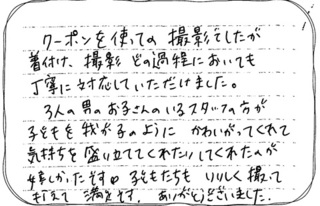 クーポンを使っての撮影でしたが
着付け、撮影 どの過程においても
丁寧に対応していただけました。
3人の男のお子さんのいるスタッフの方が
子どもを我が子のように かわいがってくれて
気持ちを盛り立ててくれたりしてくれたのが
嬉しかったです。子どもたちも りりしく撮って
もらえて 満足です。ありがとうございました。